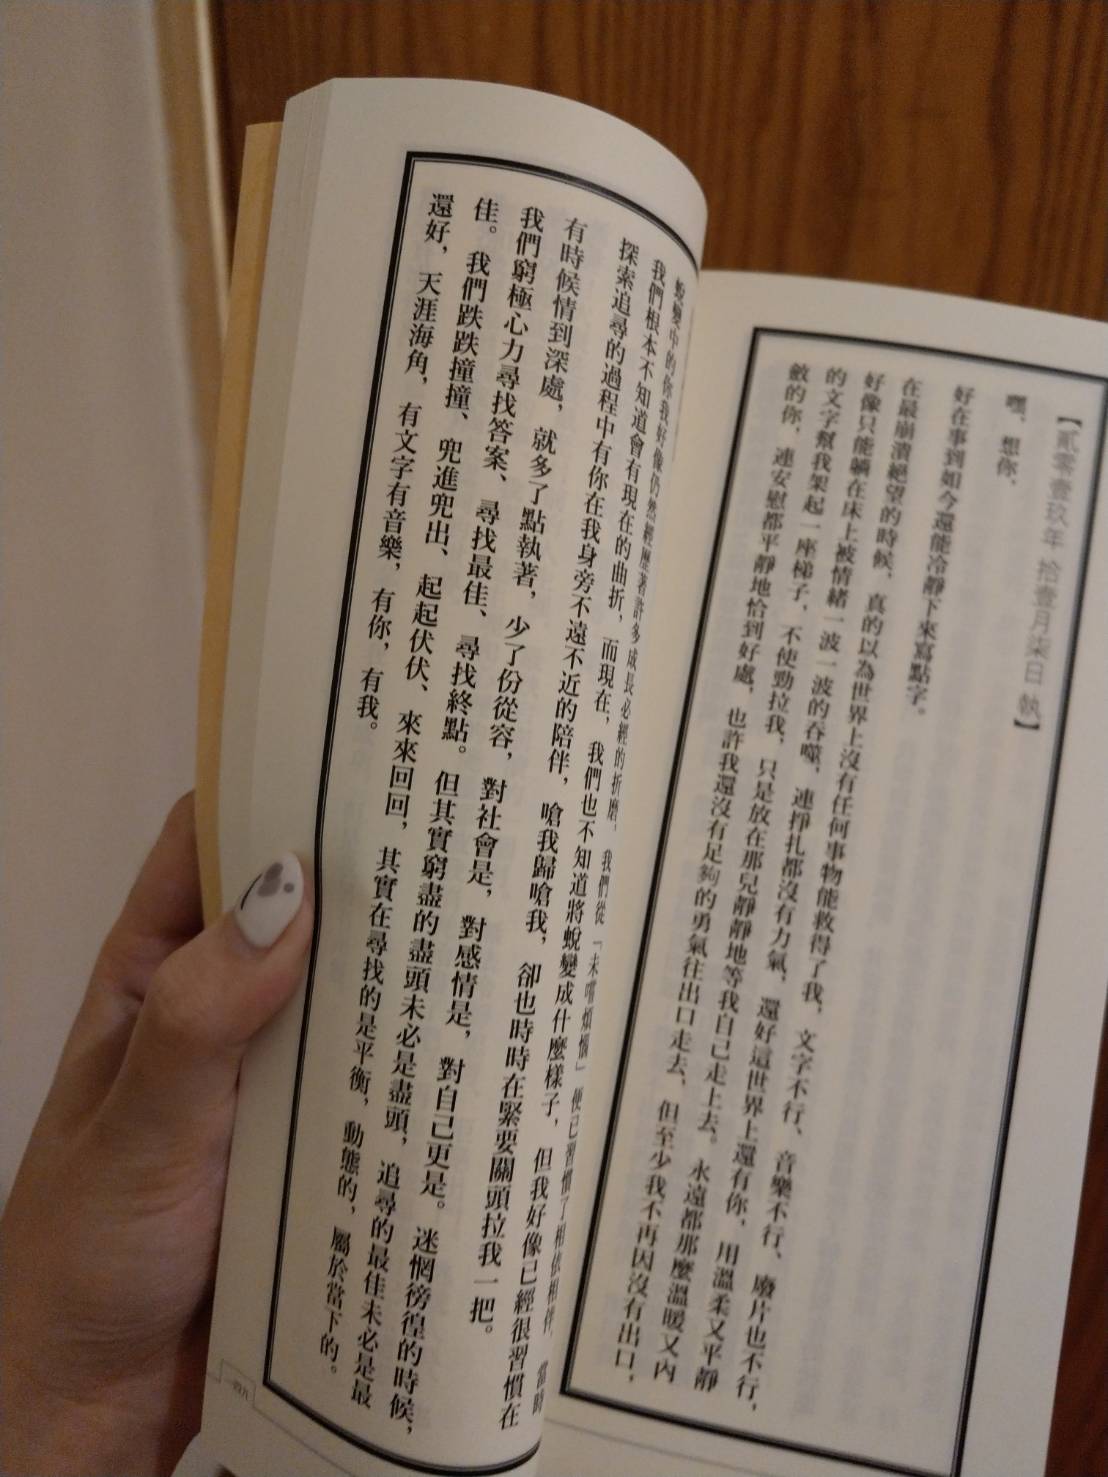 【貳零壹玖年 拾壹月柒日 執】
嘿，想你，
好在事到如今還能冷靜下來寫點字。
在最崩潰絕望的時候，真的以為世界上沒有任何事物能救得了我，文字不行、音樂不行、廢片也不行，
好像只能躺在床上被情緒一波一波的吞噬，連掙扎都沒有力氣，還好這世界上還有你，用溫柔又平靜
的文字幫我架起一座梯子，不使勁拉我，只是放在那兒靜靜地等我自己走上去。永遠都那麼溫暖又內
斂的你，連安慰都平靜地恰到好處，也許我還沒有足夠的勇氣往出口走去，但至少我不再因沒有出口，
蛻變中的你我好像仍然經歷著許多成長必經的折磨，我們從『未嚐煩惱』便已習慣了相依相伴，當時
我們根本不知道會有現在的曲折，而現在，我們也不知道將蛻變成什麼樣子，但我好像已經很習慣在
探索追尋的過程中有你在我身旁不遠不近的陪伴，嗆我歸嗆我，卻也時時在緊要關頭拉我一把。
有時候情到深處，就多了點執著，少了份從容，對社會是，對感情是，對自己更是。迷惘徬徨的時候，
我們窮極心力尋找答案、尋找最佳、尋找終點。但其實窮盡的盡頭未必是盡頭，追尋的最佳未必是最
佳。我們跌跌撞撞、兜進兜出、起起伏伏、來來回回，其實在尋找的是平衡，動態的，屬於當下的。
還好，天涯海角，有文字有音樂，有你，有我。
一四九